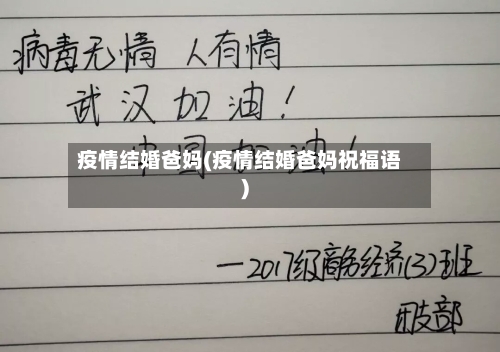 病毒无情 人有情
武汉加油!
中国加油!
疫情结婚爸妈(疫情结婚爸妈祝福语
)
一2017级商务经济(3)班
团支部